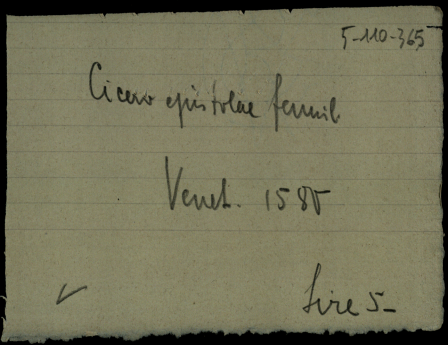 5-110-365
Cicero epistolae famil.
Venet. 1585
Lire 5-